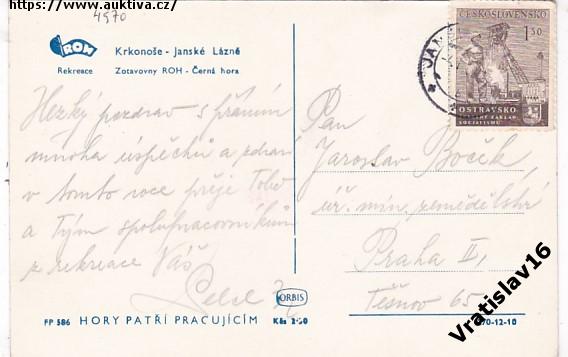 https://www.auktiva.cz/
4970
ROH
Krkonoše - Janské Lázně
Rekreace Zotavovny ROH - Černá hora
ČESKOSLOVENSKO
1,50
OSTRAVSKO
PEVNÝ ZÁKLAD
SOCIALISMU
JAN
Hezký pozdrav s přáním
mnoha úspěchů a zdraví
v tomto roce přeje Tobě
a Tvým spolupracovníkům
z rekreace Váš
Pan
Jaroslav Bočík,
úř. min. zemědělství
Praha II,
Těšnov 65
ORBIS
FP 586 HORY PATŘÍ PRACUJÍCÍM Kčs
70-12-10
Vratislav16